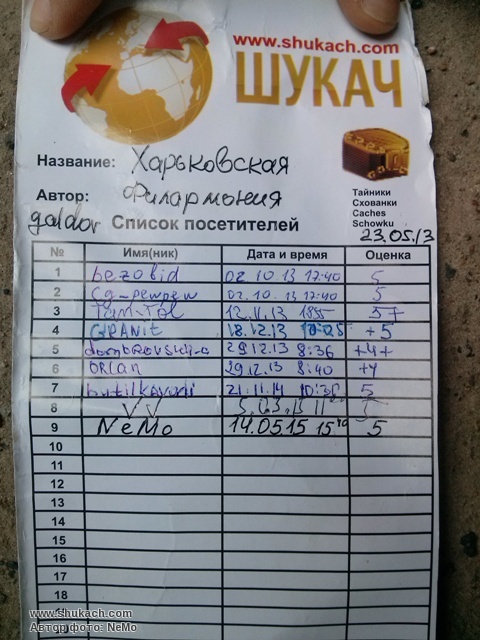 www.shukach.com
ШУКАЧ
Название: Харьковская
Автор: Филармония
Тайники
Схованки
Caches
Schowku
galdor Список посетителей 23.05.13
№ Имя(ник) Дата и время Оценка
1 bezobid 02.10.13 17:40 5
2 cg-pewpew 02.10.13 17:40 5
3 12.11.13 1855 5+
4 GRANit 18.12.13 +5
5 29.12.13 8:36 +4+
6 ORLAN 29.12.13 8:40 +4
7 21.11.14 10:36 5
8 VV
9 NeMo 14.05.15 15 40 5
10
11
12
13
14
15
16
17
18
www.shukach.com
Автор фото: NeMo